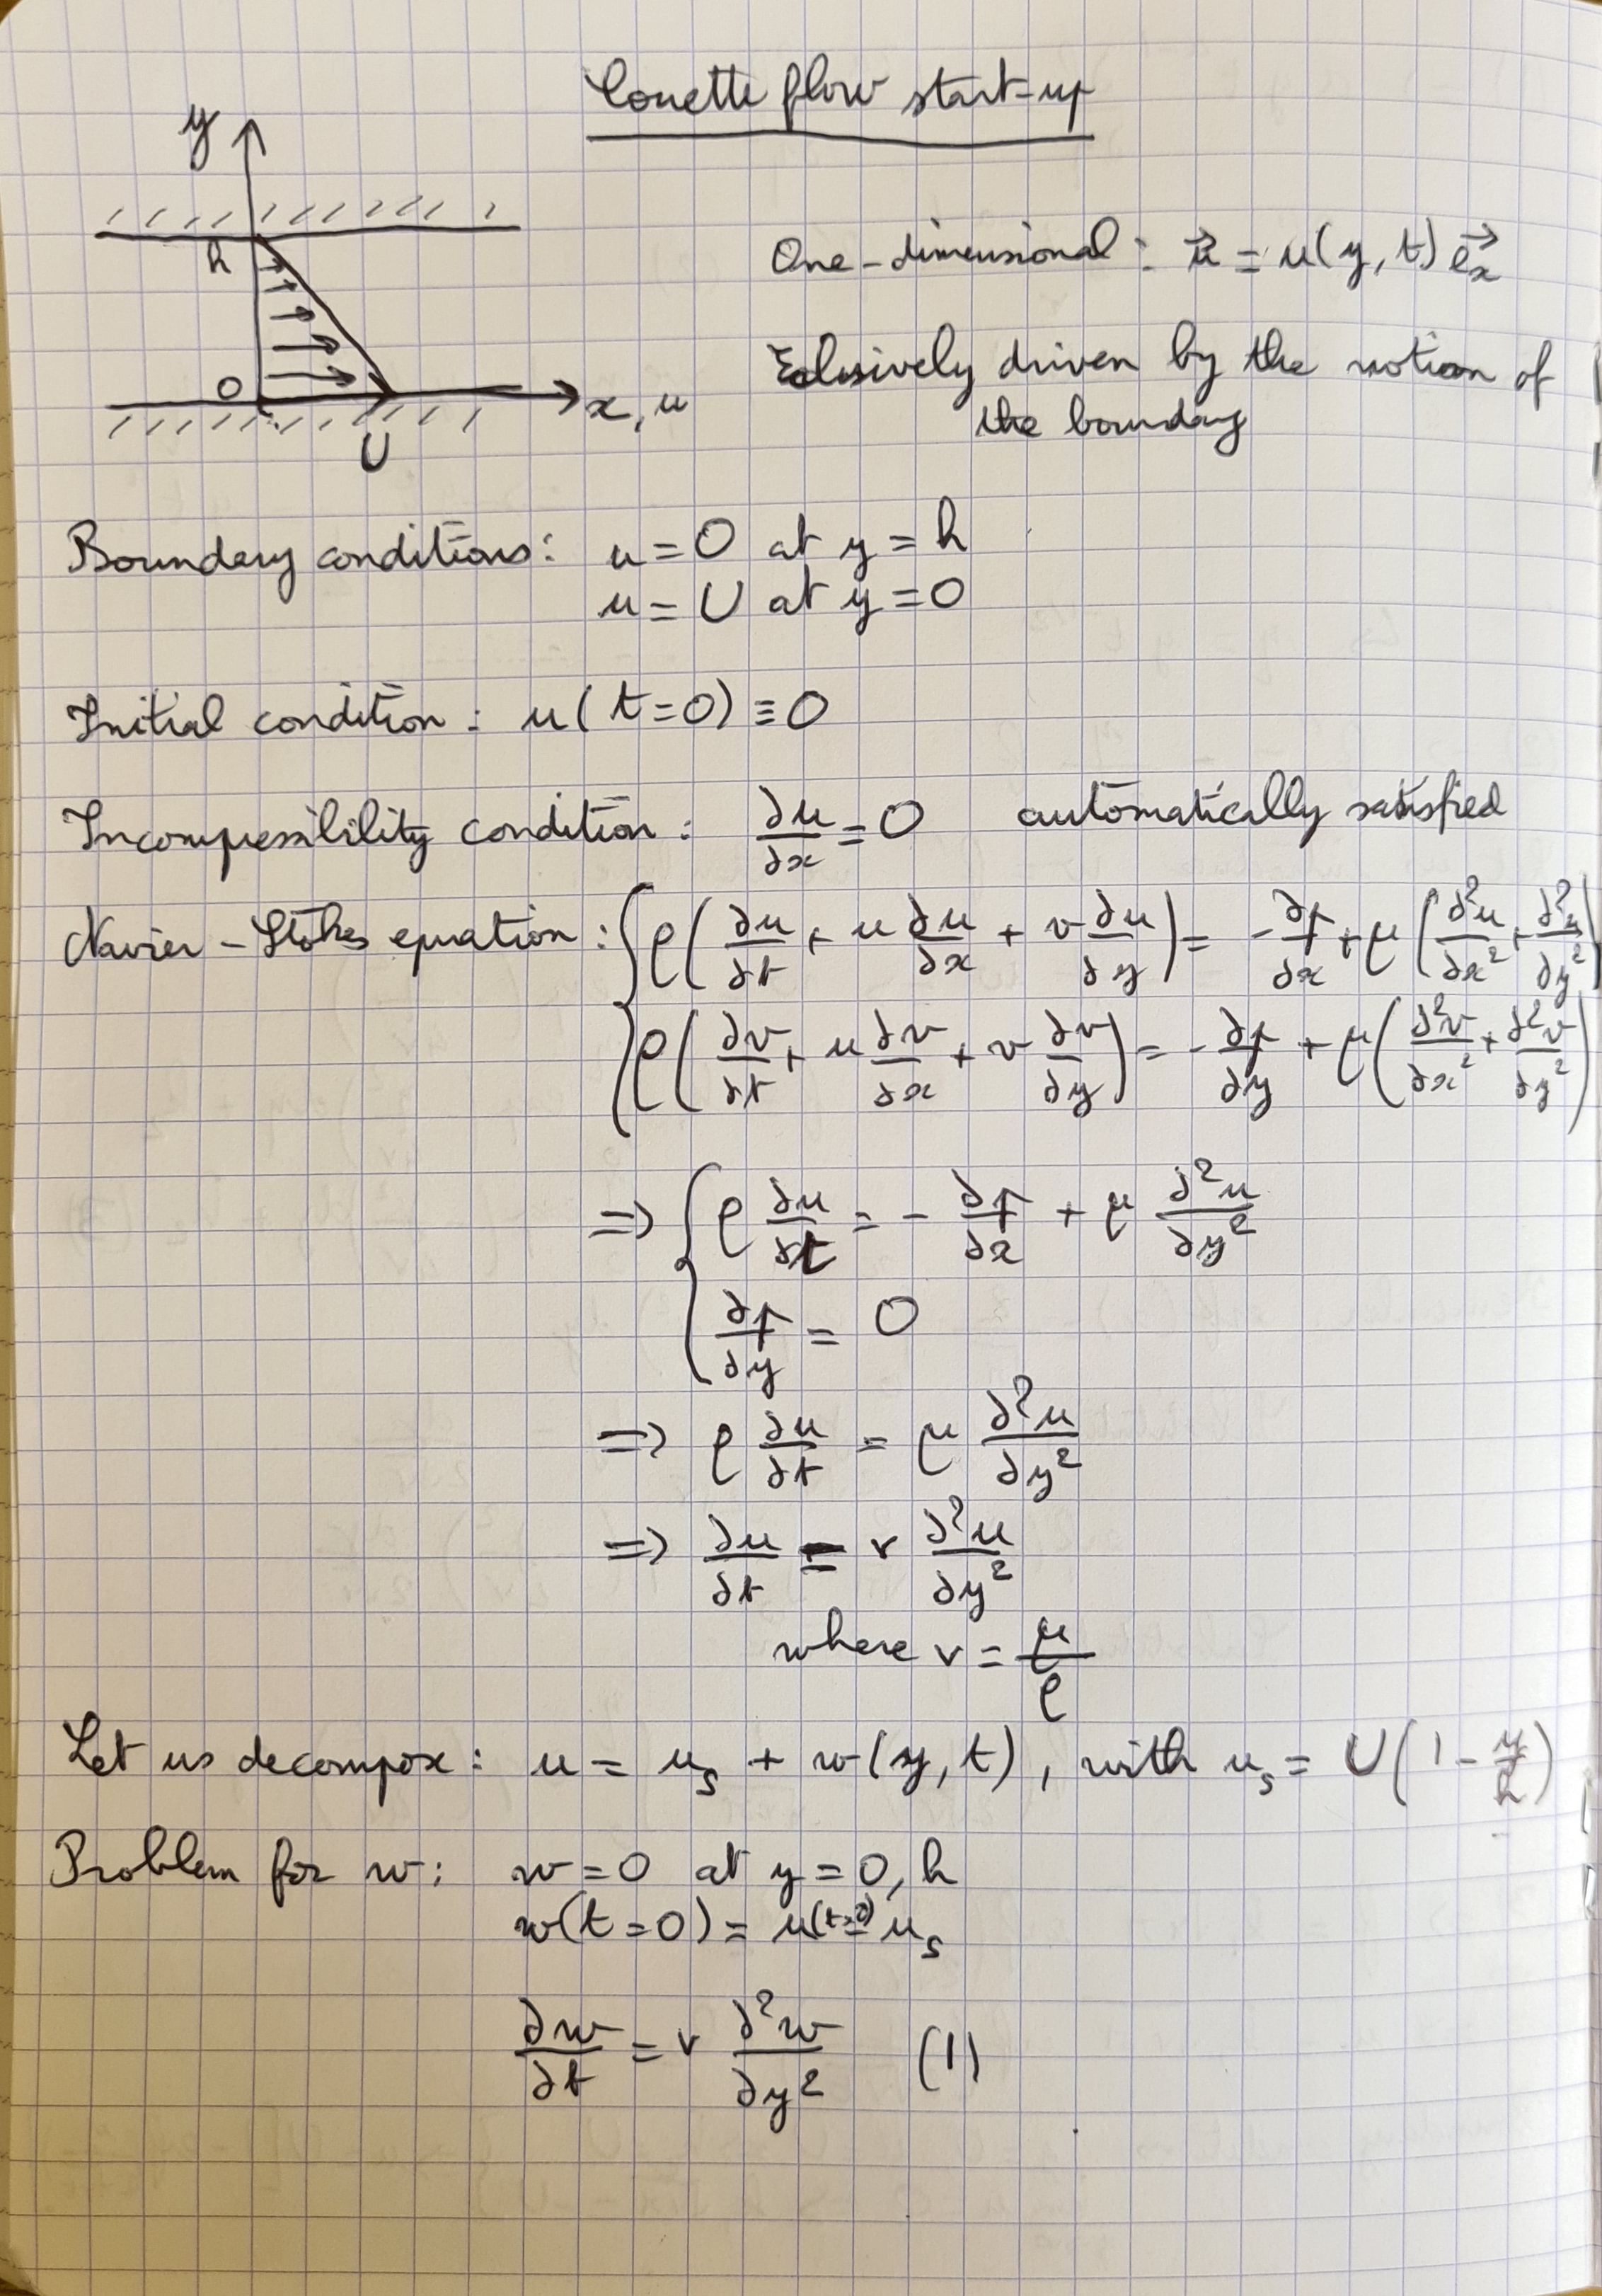 Couette flow start-up
y
h
0
x, u
U
One-dimensional : \vec{u} = u(y, t) \vec{e_x}
Exlusively driven by the motion of
the boundary
Boundary conditions: u = 0 at y = h
u = U at y = 0
Initial condition : u(t=0) ≡ 0
Incompressibility condition : ∂u/∂x = 0 automatically satisfied
Navier-Stokes equation : { ρ(∂u/∂t + u ∂u/∂x + v ∂u/∂y) = -∂p/∂x + μ(∂²u/∂x² + ∂²u/∂y²)
ρ(∂v/∂t + u ∂v/∂x + v ∂v/∂y) = -∂p/∂y + μ(∂²v/∂x² + ∂²v/∂y²)
=> { ρ ∂u/∂t = - ∂p/∂x + μ ∂²u/∂y²
∂p/∂y = 0
=> ρ ∂u/∂t = μ ∂²u/∂y²
=> ∂u/∂t = ν ∂²u/∂y²
where ν = μ/ρ
Let us decompose : u = u_s + w(y, t), with u_s = U(1 - y/h)
Problem for w: w = 0 at y = 0, h
w(t=0) = u(t=0) - u_s
∂w/∂t = ν ∂²w/∂y² (1)